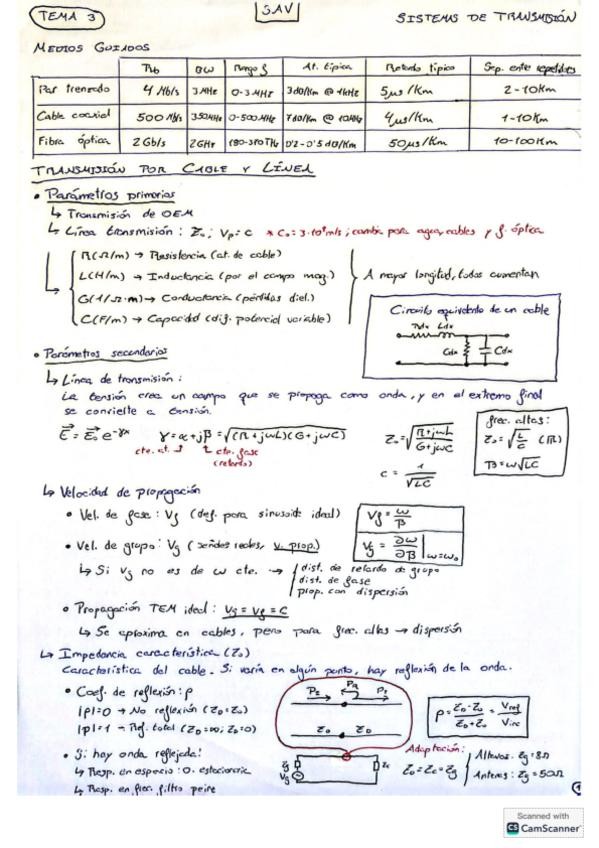 TEMA 3
SAV
SISTEMAS DE TRANSMISIÓN
MEDIOS GUIADOS
Rb BW Rango f At. típica Retardo típico Sep. entre repetidores
Par trenzado 4 Mb/s 3 MHz 0-3 MHz 3 dB/Km @ 1kHz 5 μs/Km 2-10Km
Cable coaxial 500 Mb/s 350MHz 0-500MHz 7 dB/Km @ 10MHz 4 μs/Km 1-10Km
Fibra óptica 2 Gb/s 2GHz 180-370THz 0'2-0'5 dB/Km 50 μs/Km 10-100Km
TRANSMISIÓN POR CABLE Y LÍNEA
• Parámetros primarios
↳ Transmisión de OEM
↳ Línea transmisión: Z₀; Vp = C * C₀ = 3·10⁸ m/s; cambia para agua, cables y f. óptica
R(Ω/m) → Resistencia (at. de cable)
L(H/m) → Inductancia (por el campo mag.)
G(1/Ω·m) → Conductancia (pérdidas diel.)
C(F/m) → Capacidad (dif. potencial variable)
A mayor longitud, todas aumentan
Circuito equivalente de un cable
Rdx Ldx
Gdx Cdx
• Parámetros secundarios
↳ Línea de transmisión:
La tensión crea un campo que se propaga como onda, y en el extremo final
se convierte a tensión.
E = E₀ e^-γx γ = α + jβ = √(R + jωL)(G + jωC)
cte. at. cte. fase
(retardo)
Z₀ = √(R+jωL / G+jωC)
c = 1/√LC
frec. altas:
Z₀ = √(L/C) (R)
β = ω√LC
↳ Velocidad de propagación
• Vel. de fase: Vf (def. para sinusoide ideal)
Vf = ω/β
• Vel. de grupo: Vg (señales reales, v. prop.)
Vg = ∂ω/∂β |ω=ω₀
↳ Si Vg no es de ω cte. →
dist. de retardo de grupo
dist. de fase
prop. con dispersión
• Propagación TEM ideal: Vg = Vf = C
↳ Se aproxima en cables, pero para frec. altas → dispersión
↳ Impedancia característica (Z₀)
Característica del cable. Si varía en algún punto, hay reflexión de la onda.
• Coef. de reflexión: ρ
|ρ|=0 → No reflexión
|ρ|=1 → Ref. total
Adaptación:
• Si hay onda reflejada:
↳ Resp. en espacio: O. estacionaria
↳ Resp. en frec. filtro peine
Altavoz: Zg = 8Ω
Antenas: Zg = 50Ω
1
Scanned with
CS CamScanner